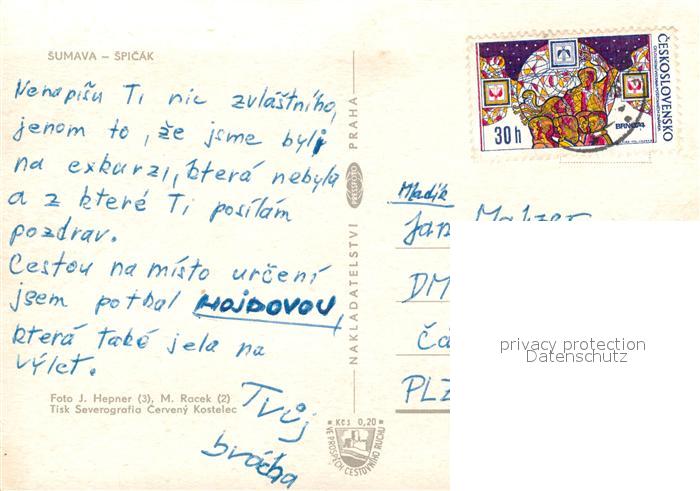 ŠUMAVA – ŠPIČÁK
Nenapíšu Ti nic zvláštního,
jenom to, že jsme byli
na exkurzi, která nebyla
a z které Ti posílám
pozdrav.
Cestou na místo určení
jsem potkal HOJDOVOU,
která také jela na
výlet.
Tvůj
brácha
Foto J. Hepner (3), M. Racek (2)
Tisk Severografia Červený Kostelec
NAKLADATELSTVÍ PRESSFOTO PRAHA
Kčs 0,20
VE PROSPĚCH CESTOVNÍHO RUCHU
ČESKOSLOVENSKO
30 h
BRNO 74
Mladík
Jan
DM
PLZ
privacy protection
Datenschutz